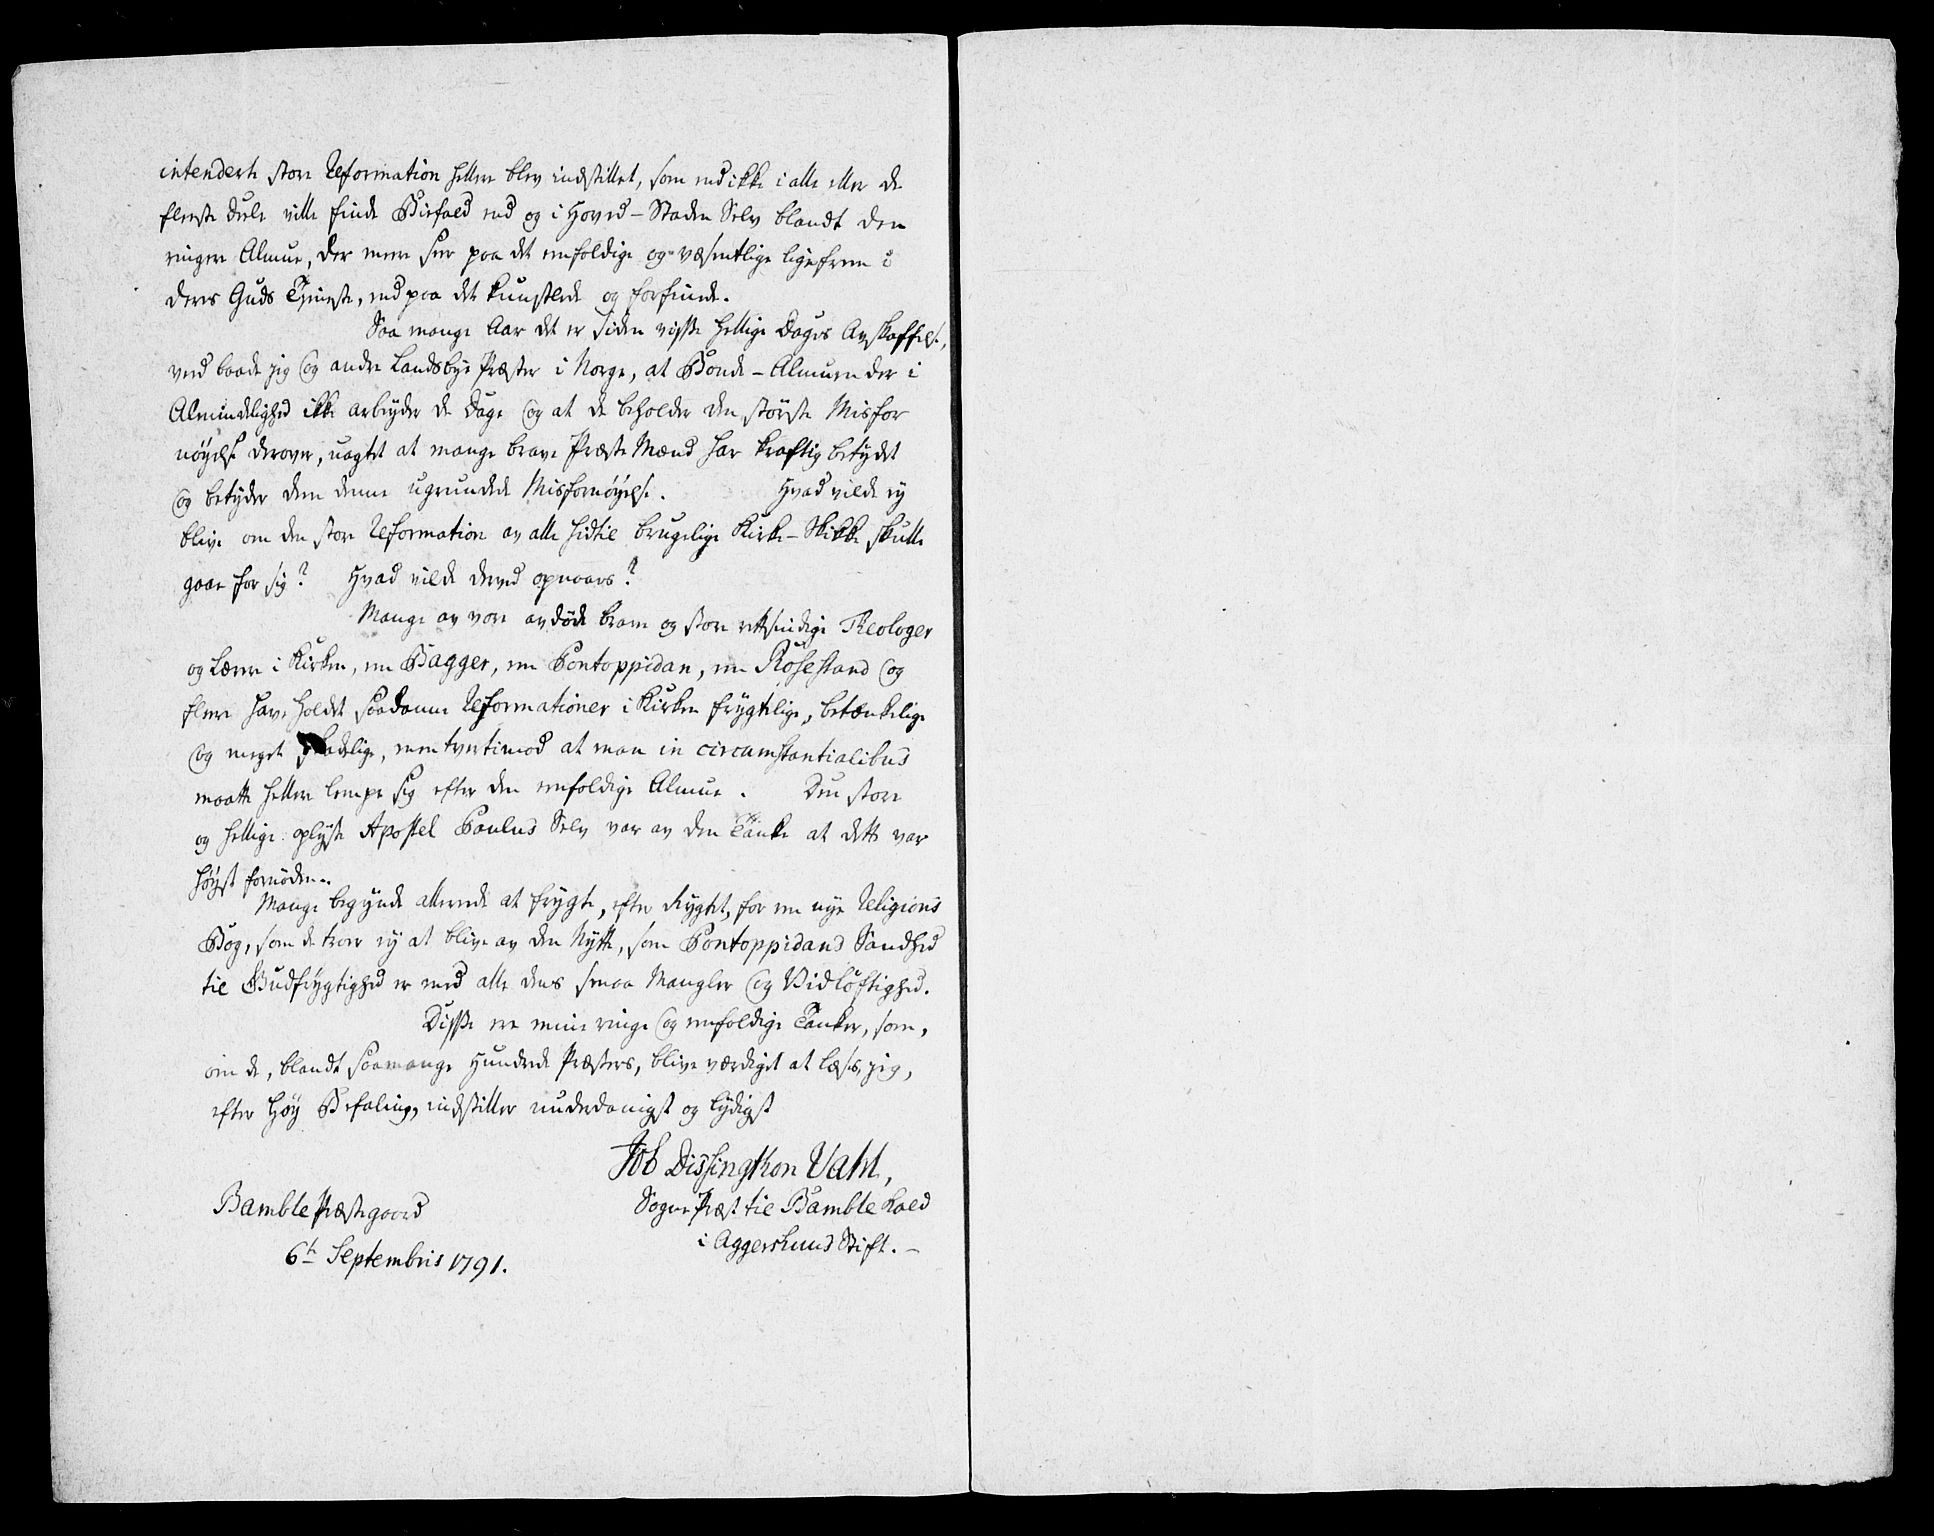 intenderte store Reformation hellere blev indstillet, som end ikke i alle eller de
fleeste Deele ville finde Biefald end og i Hoved-Staden Selv blandt den
ringere Almue, der mere seer paa det eenfoldige og væsentlige ligefrem i
deres Guds Tjeneste, end paa det kunstlede og forfiinede.
Saa mange Aar det er siden visse hellige Dages Avskaffelse,
veed baade jeg og andre Landsbye Præster i Norge, at Bonde-Almuen der i
Almindelighed ikke arbeyder de Dage og at de beholder den största Misfor
nöyelse derover, uagtet at mange brave Præste Mænd har kraftig betydet
og betyder dem denne ugrundede Misfornöyelse. Hvad vilde ey
blive om den store Reformation av alle hidtil brugelige Kirke-Skikke skulle
gaae for sig? Hvad vilde derved opnaaes?
Mange av vore avdöde brave og store retsindige Theologer
og Lærere i Kirken, en Bagger, en Pontoppidan, en Rosestand og
flere have holdet saadanne Reformationer i Kirken frygtelige, betænkelige
og meget skadelige, men tvertimod at man in circumstantialibus
maatte hellere lempe sig efter den eenfoldige Almue. Den store
og hellige oplyste Apostel Paulus Selv var av den Tanke at dette var
höyst fornöden.
Mange begynde allerede at frygte, efter Rygtet, for en nye Religions
Bog, som de troer ey at blive av den Nytte, som Pontoppidans Sandhed
til Gudfrygtighed er med alle dens smaa Mangler og Vidlöftighed.
Disse ere mine ringe og eenfoldige Tanker, som,
om de, blandt saamange Hundrede Præsters, blive værdiget at læses, jeg,
efter Höy Befaling, indstiller underdanigst og lydigst
Job Dissingthon Vahl,
Bamble Præstegaard
Sogne Præst til Bamble Kald
i Aggershuus Stift.-
6t Septembris 1791.